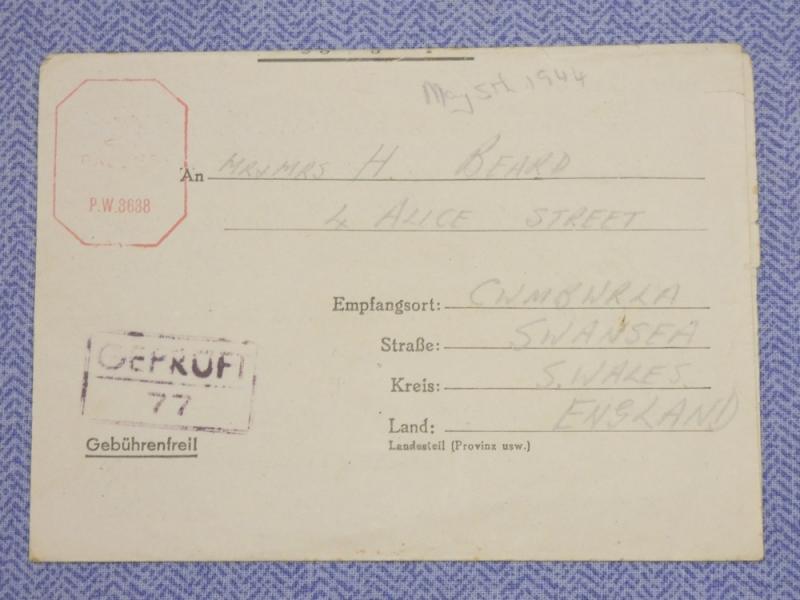 May 5th 1944
An MR & MRS H. BEARD
4 ALICE STREET
P.W.3638
Empfangsort: CWMBWRLA
Straße: SWANSEA
Kreis: S. WALES.
Land: ENGLAND
Landesteil (Provinz usw.)
GEPRÜFT
77
Gebührenfrei!